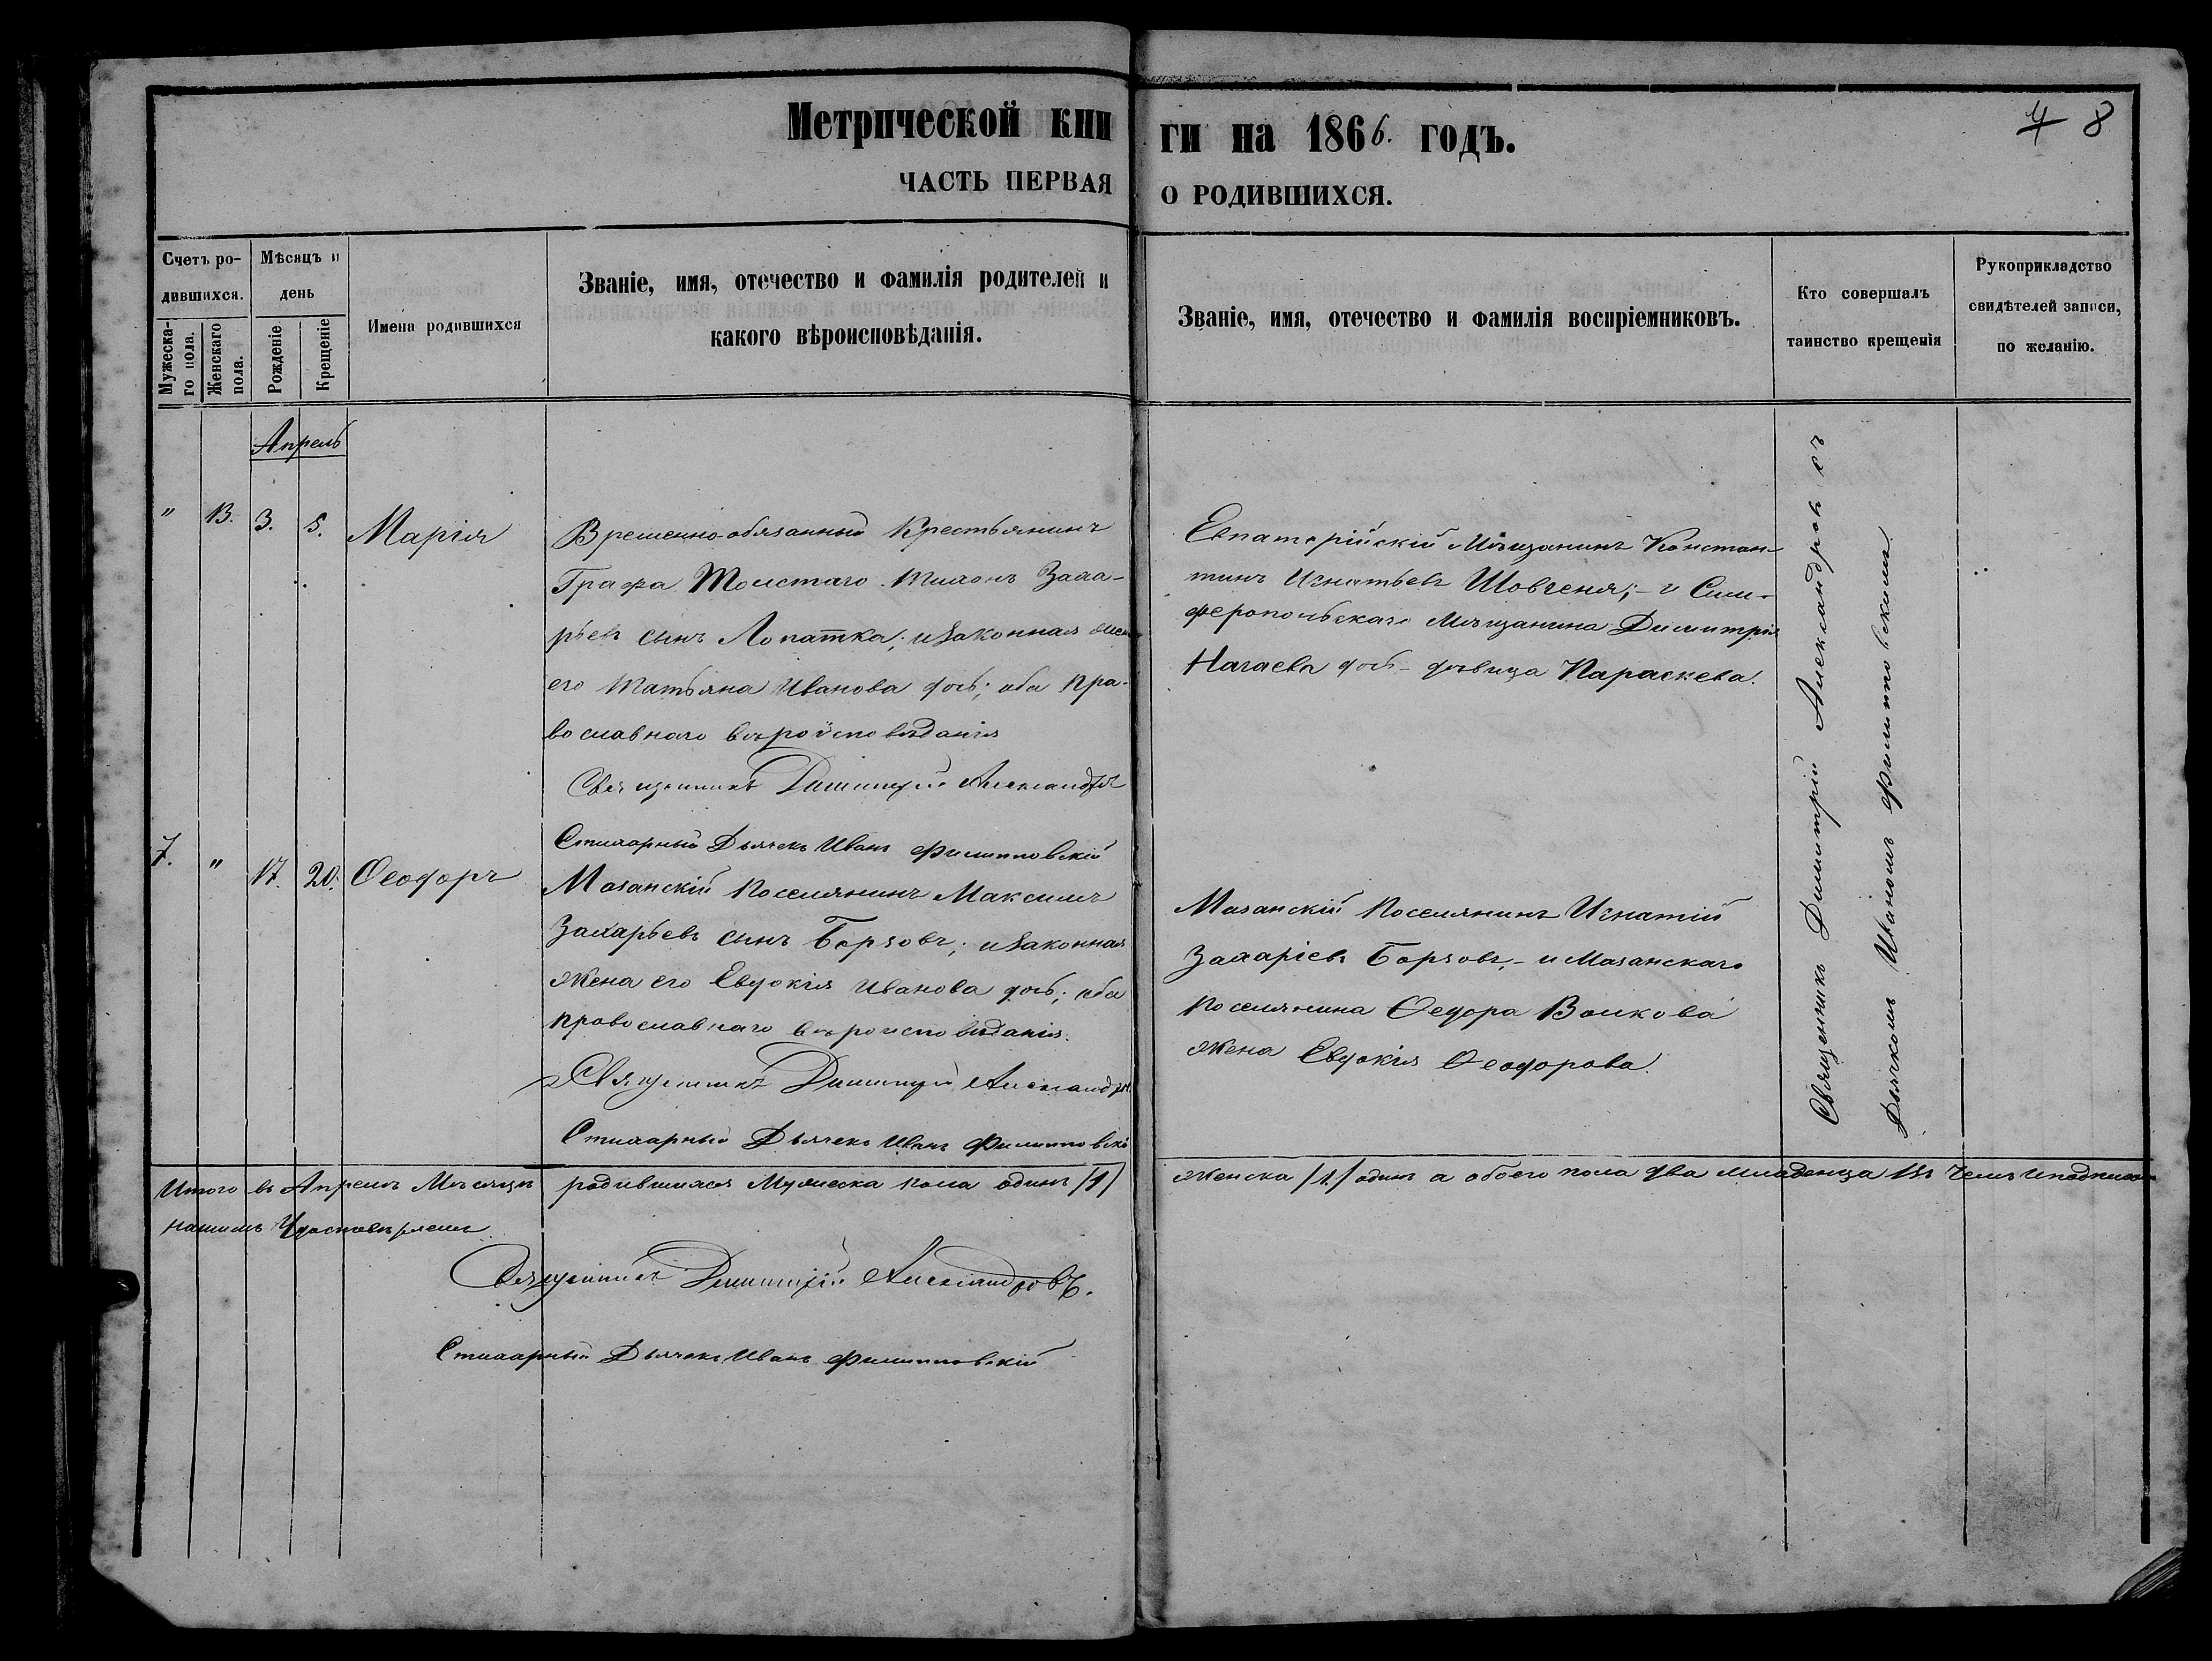 Метрической кни ги на 1866. годъ.
4 8
ЧАСТЬ ПЕРВАЯ О РОДИВШИХСЯ.
Счетъ ро-
дившихся.
Мужеска-
го пола.
Женскаго
пола.
Мѣсяцъ и
день
Рожденіе
Крещеніе
Имена родившихся
Званіе, имя, отечество и фамилія родителей и
какого вѣроисповѣданія.
Званіе, имя, отечество и фамилія воспріемниковъ.
Кто совершалъ
таинство крещенія
Рукоприкладство
свидѣтелей записи,
по желанію.
Апрель
" 13. 3. 5. Марія
Временно-обязанный Крестьянинъ
Графа Толстаго Тихонъ Заха-
рьевъ сынъ Лопатка; и законная жена
его Татьяна Иванова дочь; оба пра-
вославнаго вѣроисповѣданія
Священникъ Димитрій Александровъ
Стихарный Дьячекъ Иванъ Филипповскій
Евпаторійскій Мѣщанинъ Констан-
тинъ Игнатьевъ Шовгеня; - и Сим-
феропольскаго Мѣщанина Димитрія
Нагаева дочь - дѣвица Параскева.
7. " 17. 20. Ѳеодоръ
Мазанскій Поселянинъ Максимъ
Захарьевъ сынъ Борзовъ; и законная
жена его Евдокія Иванова дочь; оба
православнаго вѣроисповѣданія.
Священникъ Димитрій Александровъ
Стихарный Дьячекъ Иванъ Филипповскій
Мазанскій Поселянинъ Игнатій
Захаріевъ Борзовъ, - и Мазанскаго
Поселянина Ѳедора Волкова
жена Евдокія Ѳеодорова.
Священникъ Димитрій Александровъ съ
Дьячкомъ Иваномъ Филипповскимъ.
Итого въ Апрелѣ Мѣсяцѣ родившихся Мужеска пола одинъ /1/ женска /1/ одинъ а обоего пола два младенца въ чемъ и подписомъ
нашимъ Удостовѣряемъ
Священникъ Димитрій Александровъ.
Стихарный Дьячекъ Иванъ Филипповскій